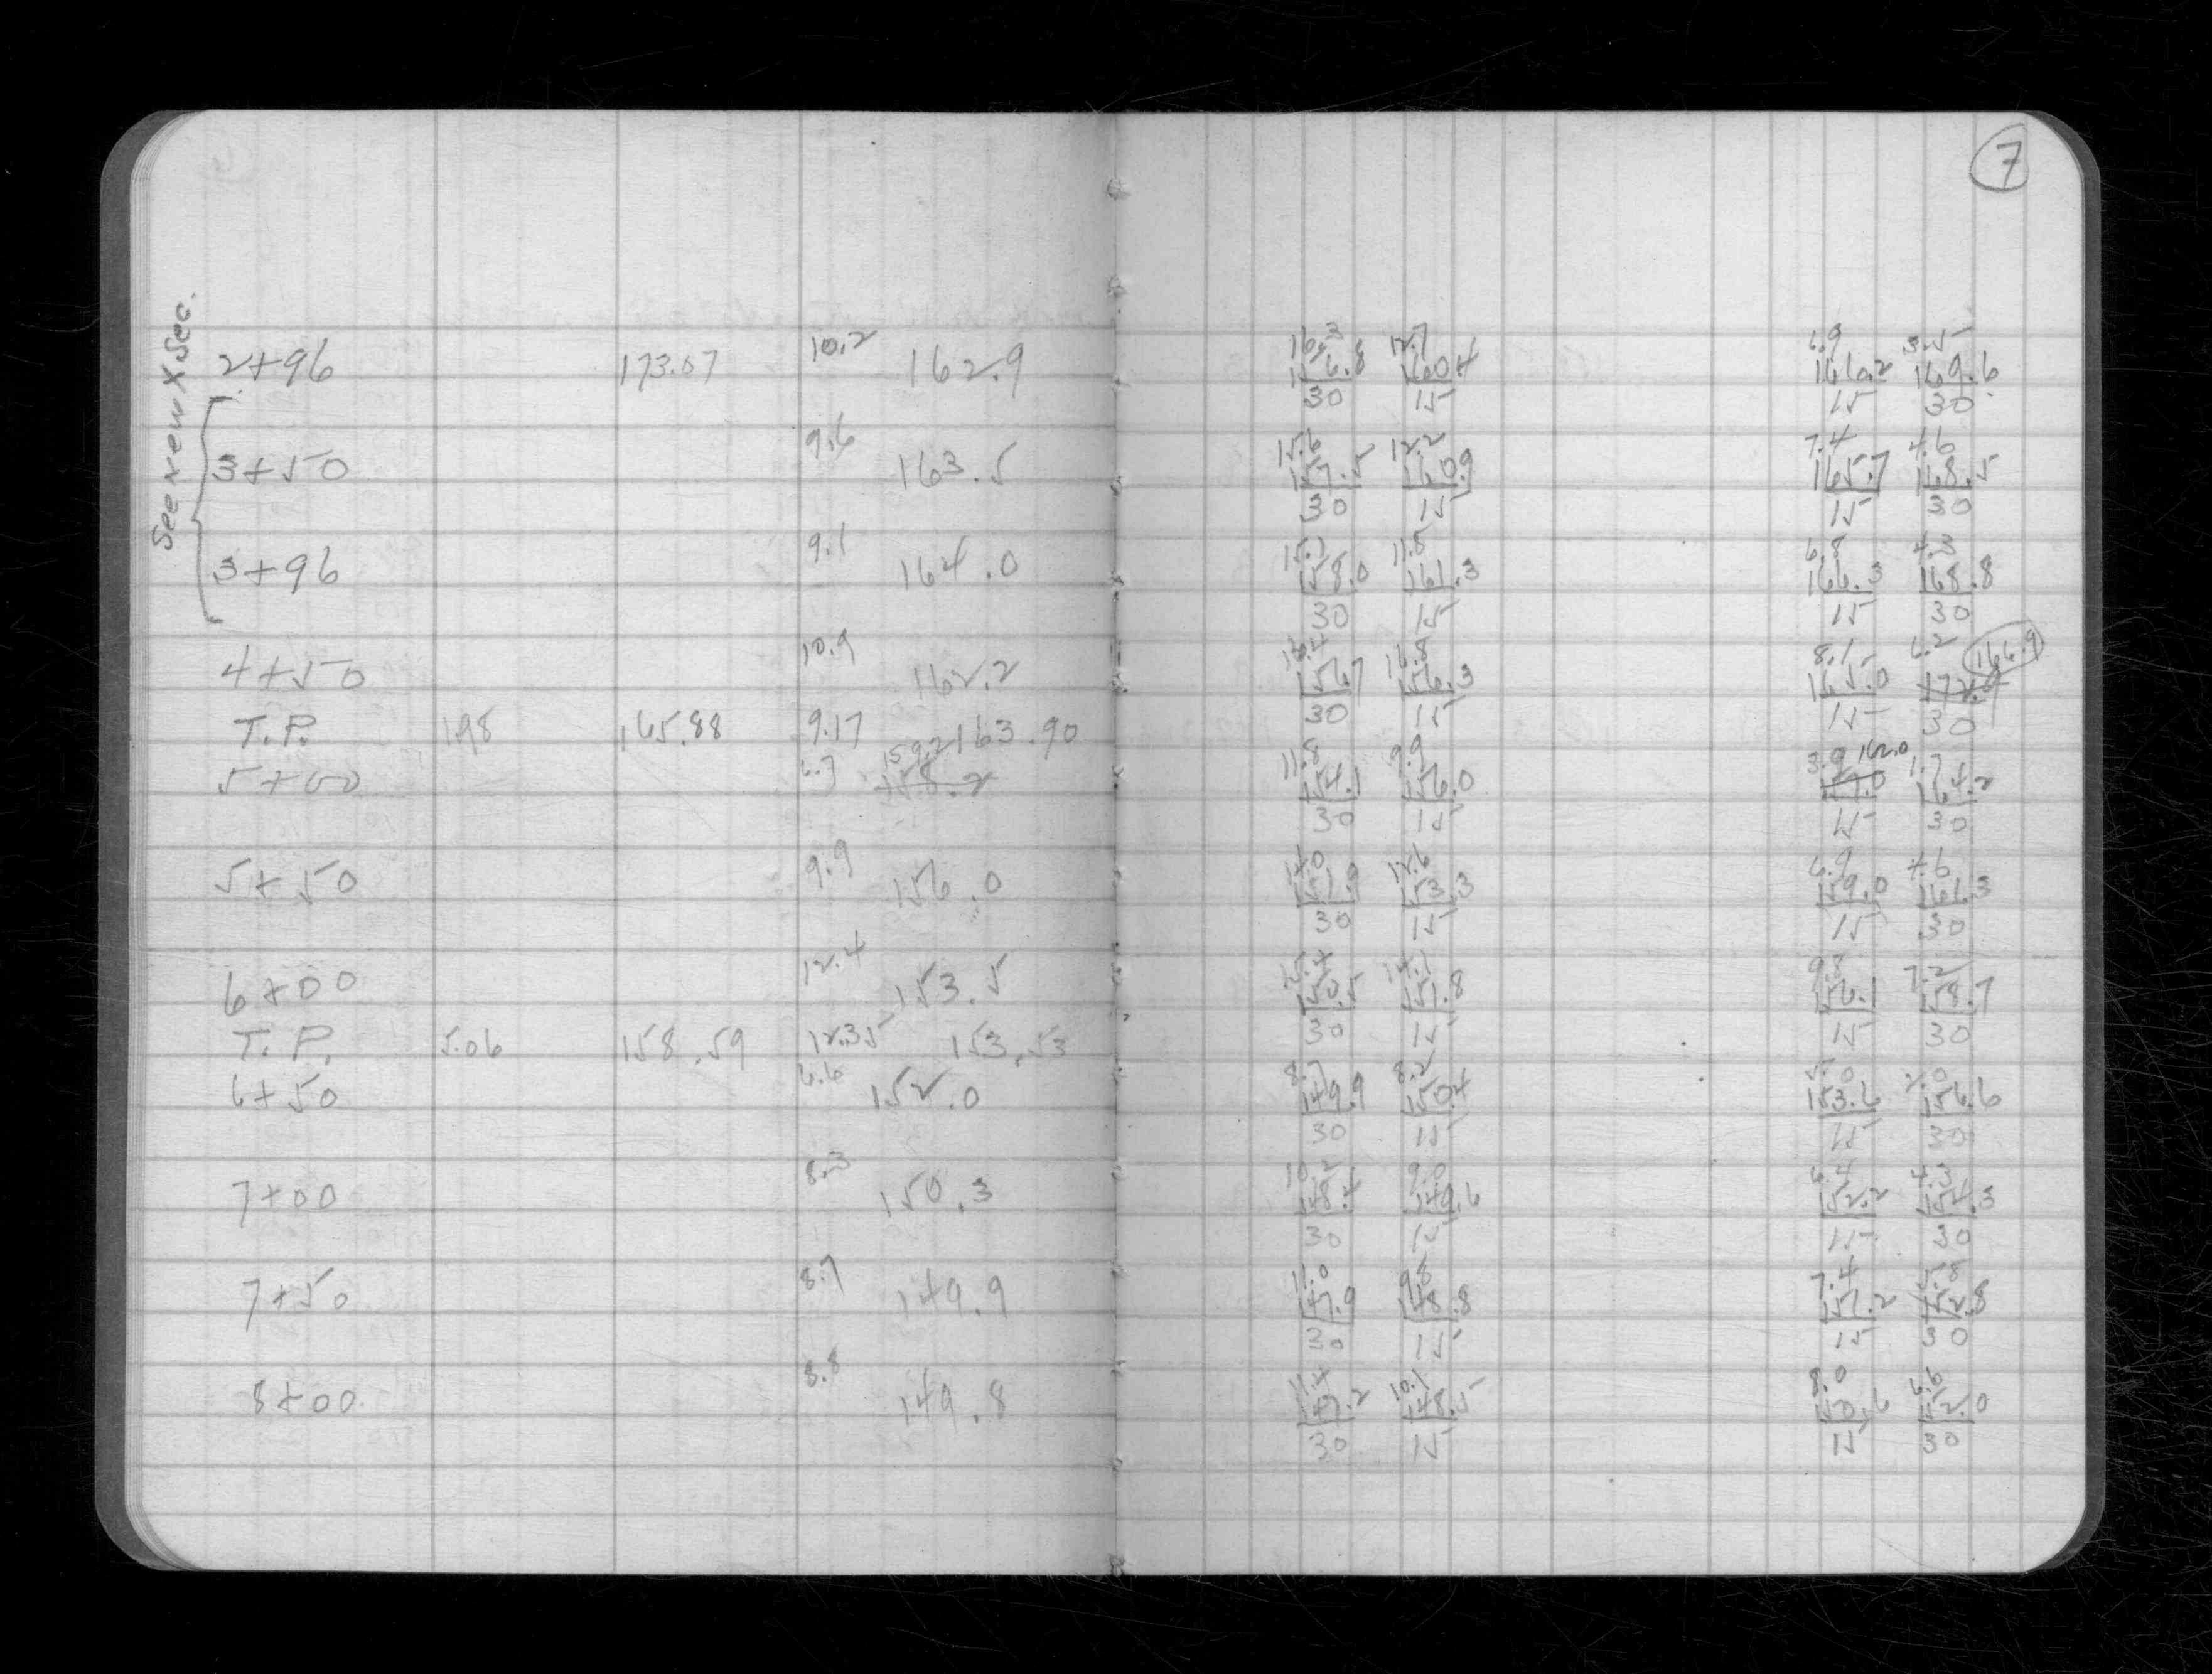 7
See new X Sec.
2+96 173.07 10.2 162.9 16.3 12.7 6.9 3.5
156.8 160.4 166.2 169.6
30 15 15 30
3+50 9.6 163.5 15.6 12.2 7.4 4.6
157.5 160.9 165.7 168.5
30 15 15 30
3+96 9.1 164.0 15.1 11.8 6.8 4.3
158.0 161.3 166.3 168.8
30 15 15 30
4+50 10.9 162.2 16.8 8.1 6.2 166.9
156.7 156.3 165.0
30 15 15 30
T.P. 1.98 165.88 9.17 163.90
5+00 6.7 159.2 158.2 11.8 9.9 3.9 162.0 1.7
154.1 156.0 164.2
30 15 15 30
5+50 9.9 156.0 14.0 12.6 6.9 4.6
151.9 153.3 159.0 161.3
30 15 15 30
6+00 12.4 153.5 15.4 14.1 9.8 7.2
150.5 151.8 156.1 158.7
30 15 15 30
T.P. 5.06 158.59 12.35 153.53
6+50 6.6 152.0 8.7 8.2 5.0 2.0
149.9 150.4 153.6 156.6
30 15 15 30
7+00 8.3 150.3 10.2 9.0 6.4 4.3
148.4 149.6 152.2 154.3
30 15 15 30
7+50 8.7 149.9 11.0 9.8 7.4 5.8
147.9 148.8 151.2 152.8
30 15 15 30
8+00 8.8 149.8 11.4 10.1 8.0 6.6
147.2 148.5 150.6 152.0
30 15 15 30